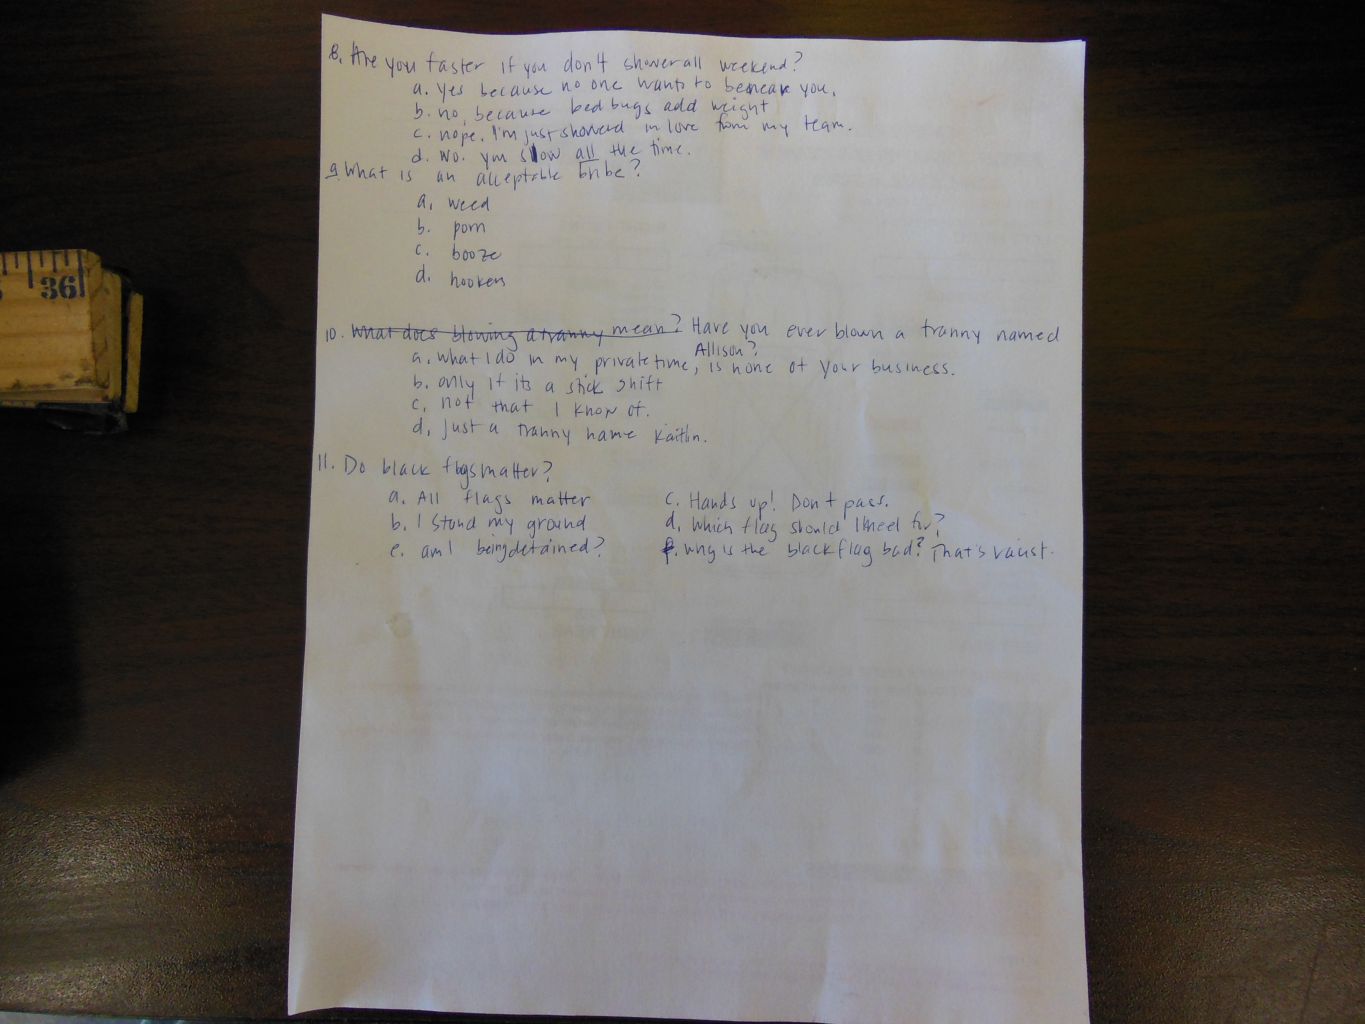 36
8. Are you faster if you don't shower all weekend?
a. Yes because no one wants to be near you.
b. no, because bed bugs add weight
c. nope. I'm just showered in love from my team.
d. No. ym slow all the time.
9. What is an acceptable bribe?
a. weed
b. porn
c. booze
d. hookers
10. What does blowing a tranny mean? Have you ever blown a tranny named
Allison?
a. what I do in my private time, is none of your business.
b. only if its a stick shift
c. not that I know of.
d. just a tranny name Kaitlin.
11. Do black flags matter?
a. All flags matter
c. Hands up! Don't pass.
b. I stand my ground
d. Which flag should I kneel for?
e. am I being detained?
f. Why is the black flag bad? That's racist.